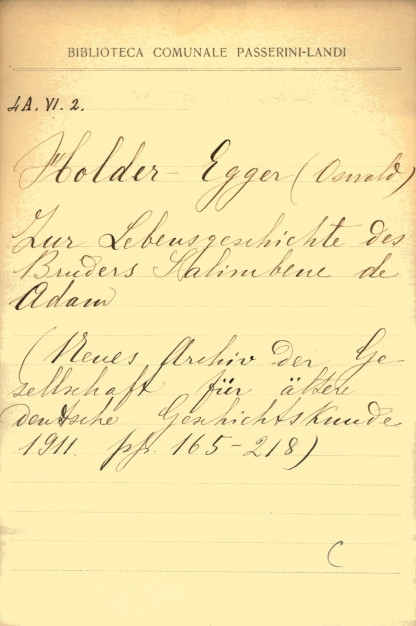 BIBLIOTECA COMUNALE PASSERINI-LANDI
4A. VI. 2.
Holder-Egger (Oswald)
Zur Lebensgeschichte des
Bruders Salimbene de
Adam
(Neues Archiv der Ge
sellschaft für ältere
deutsche Geschichtskunde
1911. pp. 165-218)
C